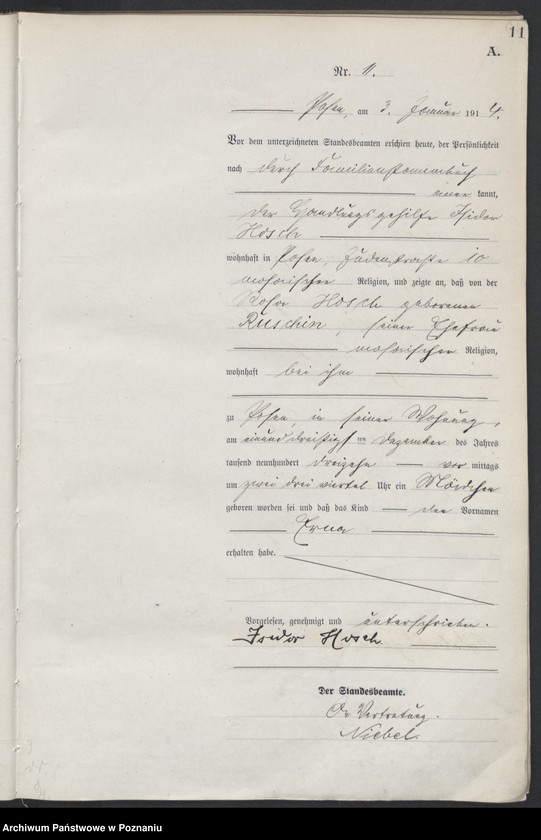 11
A.
Nr. 11.
Posen, am 3. Januar 1914.
Vor dem unterzeichneten Standesbeamten erschien heute, der Persönlichkeit
nach durch Familienstammbuch
kannt,
der Handlungsgehilfe Isidor
Hosch
wohnhaft in Posen, Judenstraße 10
mosaischer Religion, und zeigte an, daß von der
Rosa Hosch geborenen
Ruschin, seiner Ehefrau
mosaischer Religion,
wohnhaft bei ihm
zu Posen in seiner Wohnung,
am einunddreißigsten Dezember des Jahres
tausend neunhundert dreizehn vor mittags
um zwei drei viertel Uhr ein Mädchen
geboren worden sei und daß das Kind den Vornamen
Erna
erhalten habe.
Vorgelesen, genehmigt und unterschrieben.
Isidor Hosch
Der Standesbeamte.
In Vertretung.
Niebel.
Archiwum Państwowe w Poznaniu